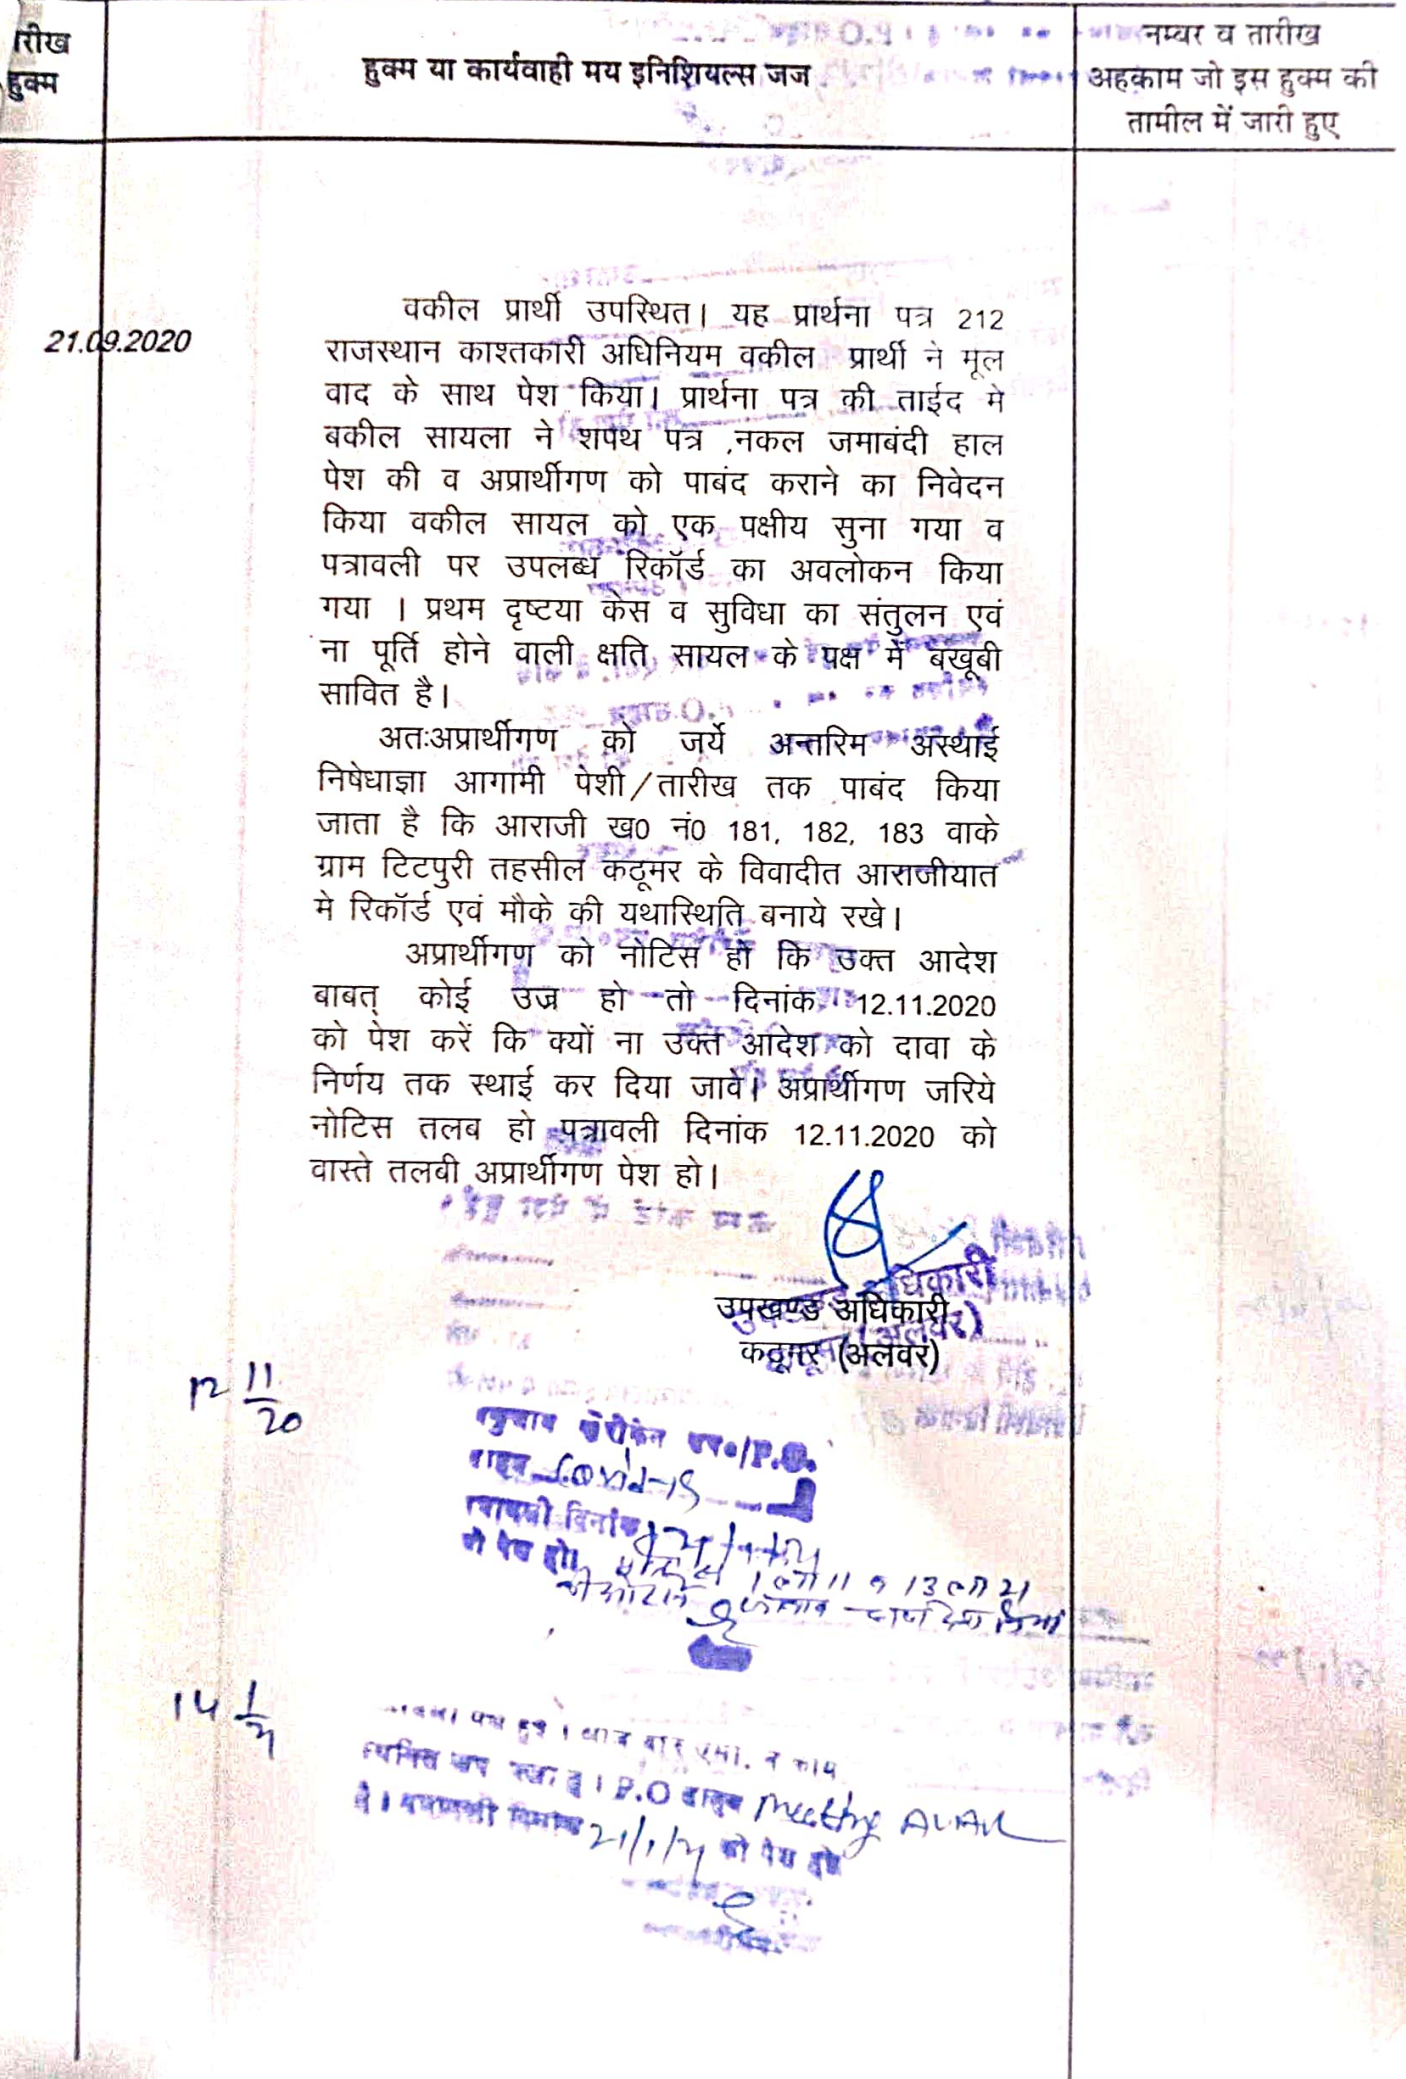 रीख
हुक्म
हुक्म या कार्यवाही मय इनिशियल्स जज
नम्बर व तारीख
अहकाम जो इस हुक्म की
तामील में जारी हुए
21.09.2020
वकील प्रार्थी उपस्थित। यह प्रार्थना पत्र 212
राजस्थान काश्तकारी अधिनियम वकील प्रार्थी ने मूल
वाद के साथ पेश किया। प्रार्थना पत्र की ताईद मे
बकील सायला ने शपथ पत्र ,नकल जमाबंदी हाल
पेश की व अप्रार्थीगण को पाबंद कराने का निवेदन
किया वकील सायल को एक पक्षीय सुना गया व
पत्रावली पर उपलब्ध रिकॉर्ड का अवलोकन किया
गया । प्रथम दृष्टया केस व सुविधा का संतुलन एवं
ना पूर्ति होने वाली क्षति सायल के पक्ष में बखूबी
सावित है।
अतःअप्रार्थीगण को जर्ये अन्तरिम अस्थाई
निषेधाज्ञा आगामी पेशी/तारीख तक पाबंद किया
जाता है कि आराजी ख0 नं0 181, 182, 183 वाके
ग्राम टिटपुरी तहसील कठूमर के विवादीत आराजीयात
मे रिकॉर्ड एवं मौके की यथास्थिति बनाये रखे।
अप्रार्थीगण को नोटिस हो कि उक्त आदेश
बाबत् कोई उज्र हो तो दिनांक 12.11.2020
को पेश करें कि क्यों ना उक्त आदेश को दावा के
निर्णय तक स्थाई कर दिया जावे। अप्रार्थीगण जरिये
नोटिस तलब हो पत्रावली दिनांक 12.11.2020 को
वास्ते तलबी अप्रार्थीगण पेश हो।
उपखण्ड अधिकारी
कठूमर (अलवर)
12 11/20
P.O.
Covid-19
दिनांक
को पेश हो।
14 1/21
P.O Meeting
दिनांक 21/1/21 को पेश हो